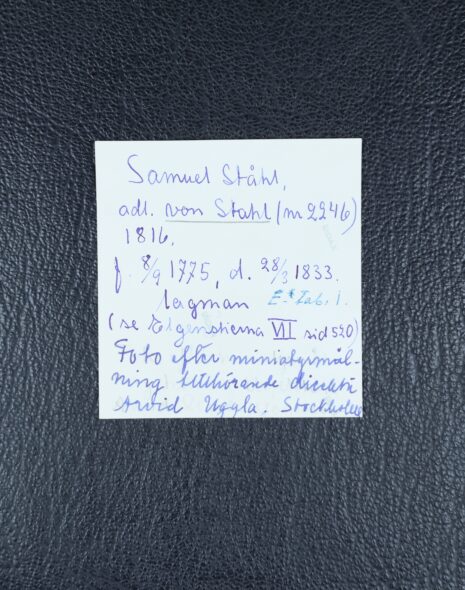 Samuel Ståhl,
adl. von Stahl (n 2246)
1816.
f. 8/9 1775, d. 28/3 1833.
lagman E.* Tab. 1.
(se Elgenstierna VII sid 520)
Foto efter miniatyrmål-
ning tillhörande direktör
Arvid Uggla. Stockholm